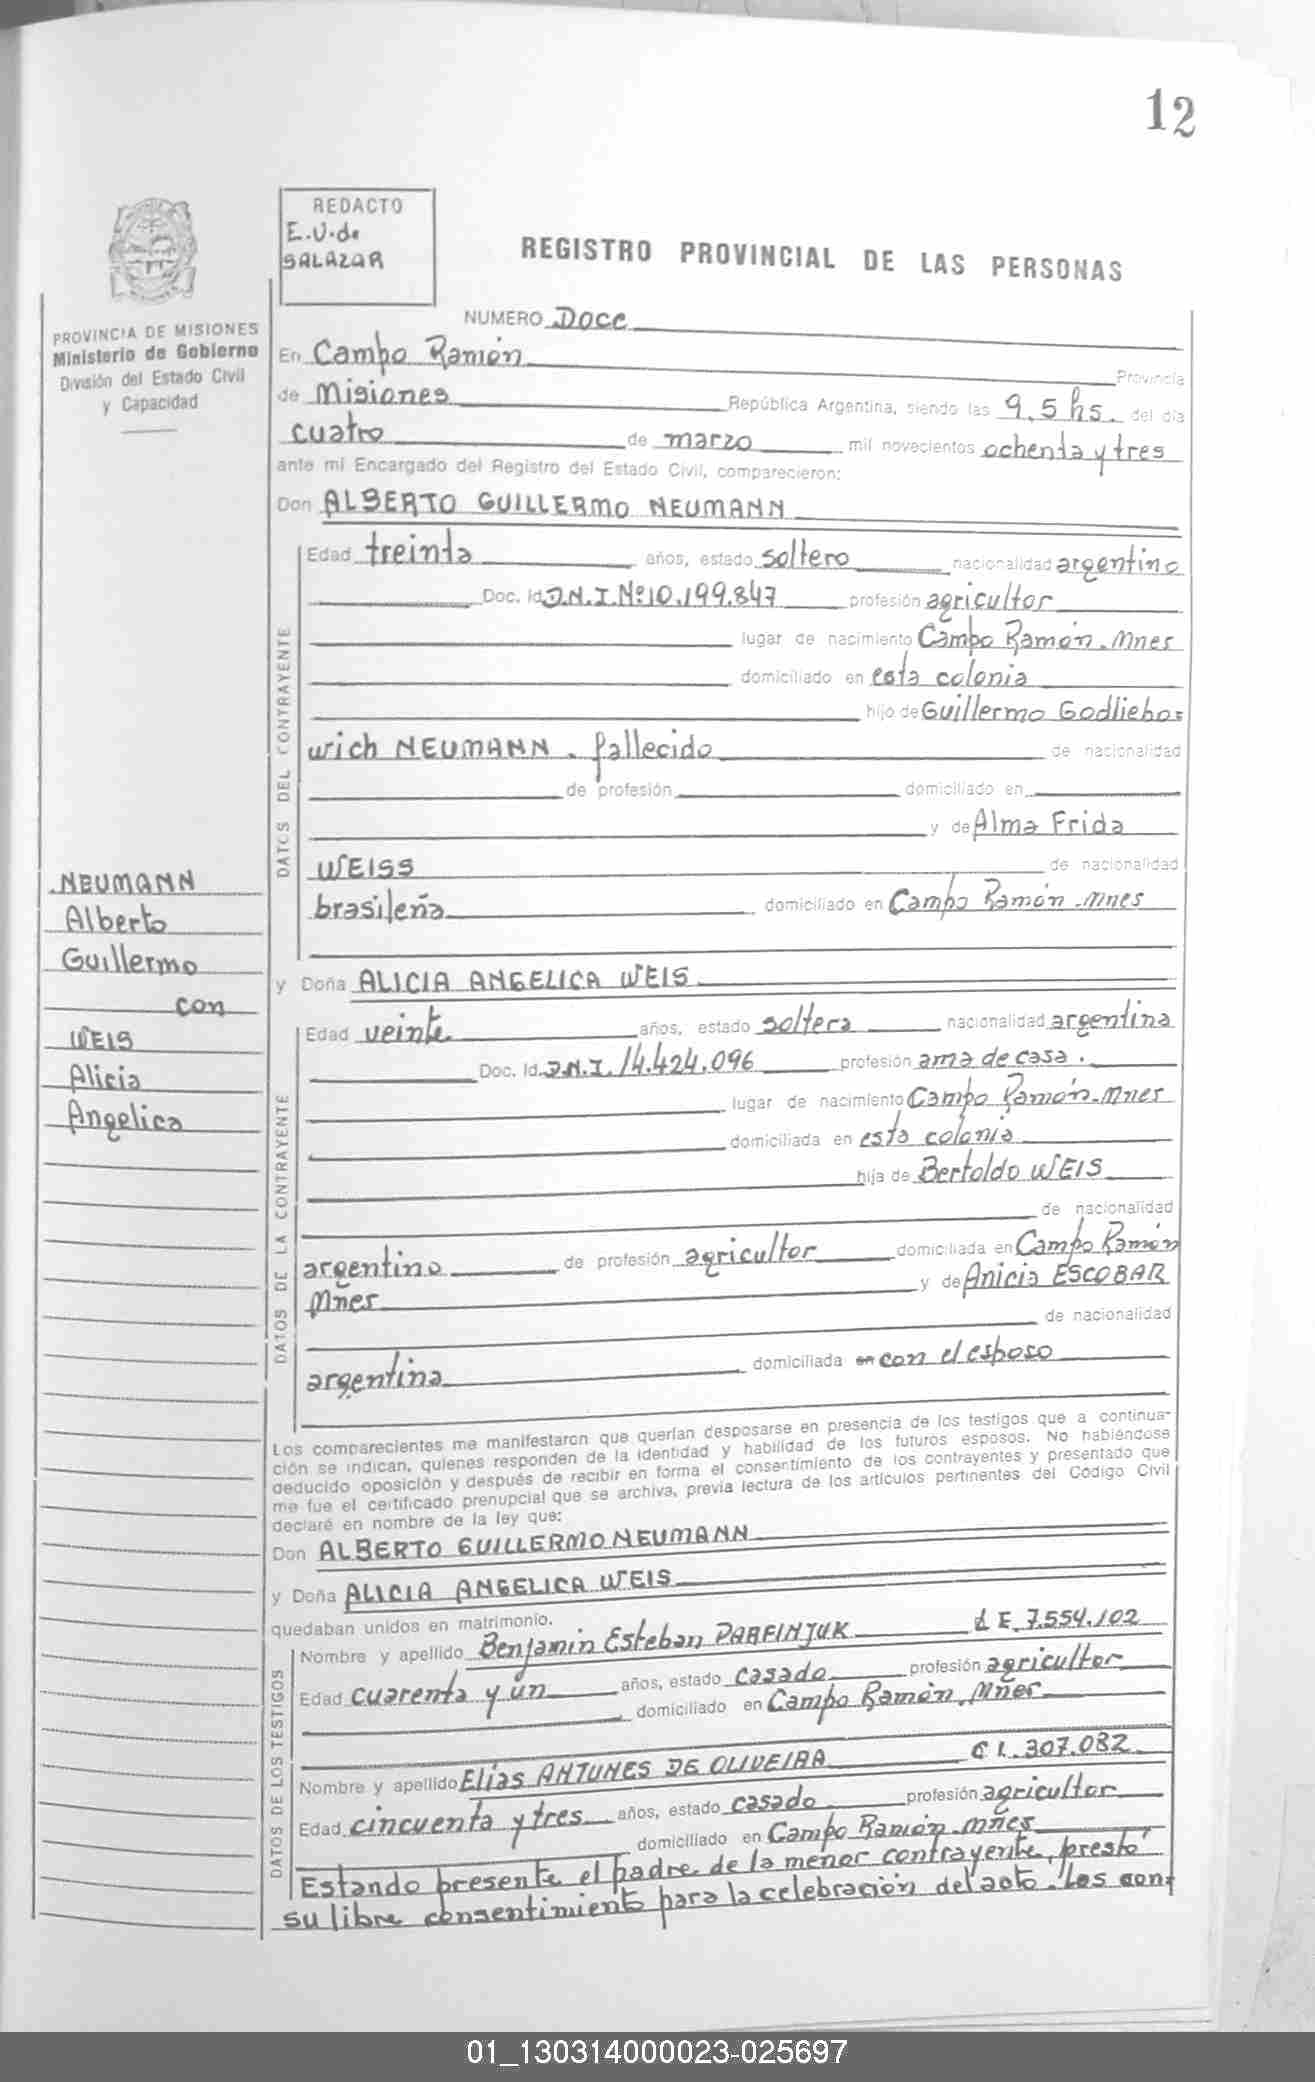 12
REDACTO
E.U.de
SALAZAR
REGISTRO PROVINCIAL DE LAS PERSONAS
PROVINCIA DE MISIONES
Ministerio de Gobierno
División del Estado Civil
y Capacidad
NUMERO Doce
En Campo Ramón Provincia
de Misiones República Argentina, siendo las 9,5 hs. del día
cuatro de marzo mil novecientos ochenta y tres
ante mi Encargado del Registro del Estado Civil, comparecieron:
Don ALBERTO GUILLERMO NEUMANN
DATOS DEL CONTRAYENTE
Edad treinta años, estado soltero nacionalidad argentino
Doc. Id. D.N.I. Nº 10.199.847 profesión agricultor
lugar de nacimiento Campo Ramón. Mnes
domiciliado en esta colonia
hijo de Guillermo Godliebos
wich NEUMANN. fallecido de nacionalidad
de profesión domiciliado en
y de Alma Frida
WEISS de nacionalidad
brasileña domiciliado en Campo Ramón. Mnes
NEUMANN
Alberto
Guillermo
con
WEIS
Alicia
Angelica
y Doña ALICIA ANGELICA WEIS
DATOS DE LA CONTRAYENTE
Edad veinte años, estado soltera nacionalidad argentina
Doc. Id. D.N.I. 14.424.096 profesión ama de casa.
lugar de nacimiento Campo Ramón-Mnes
domiciliada en esta colonia
hija de Bertoldo WEIS
de nacionalidad
argentino de profesión agricultor domiciliada en Campo Ramón
Mñes y de Anicia ESCOBAR
de nacionalidad
argentina domiciliada en con el esposo
Los comparecientes me manifestaron que querían desposarse en presencia de los testigos que a continua-
ción se indican, quienes responden de la identidad y habilidad de los futuros esposos. No habiéndose
deducido oposición y después de recibir en forma el consentimiento de los contrayentes y presentado que
me fue el certificado prenupcial que se archiva, previa lectura de los artículos pertinentes del Código Civil
declaré en nombre de la ley que:
Don ALBERTO GUILLERMO NEUMANN
y Doña ALICIA ANGELICA WEIS
quedaban unidos en matrimonio.
DATOS DE LOS TESTIGOS
Nombre y apellido Benjamin Esteban PARFINJUK L E. 7.554.102
Edad cuarenta y un años, estado casado profesión agricultor
domiciliado en Campo Ramón. Mñes
Nombre y apellido Elías ANTUNES DE OLIVEIRA C I. 307.082
Edad cincuenta y tres años, estado casado profesión agricultor
domiciliado en Campo Ramón. Mñes
Estando presente el padre de la menor contrayente, prestó
su libre consentimiento para la celebración del acto. Los cont
01_130314000023-025697